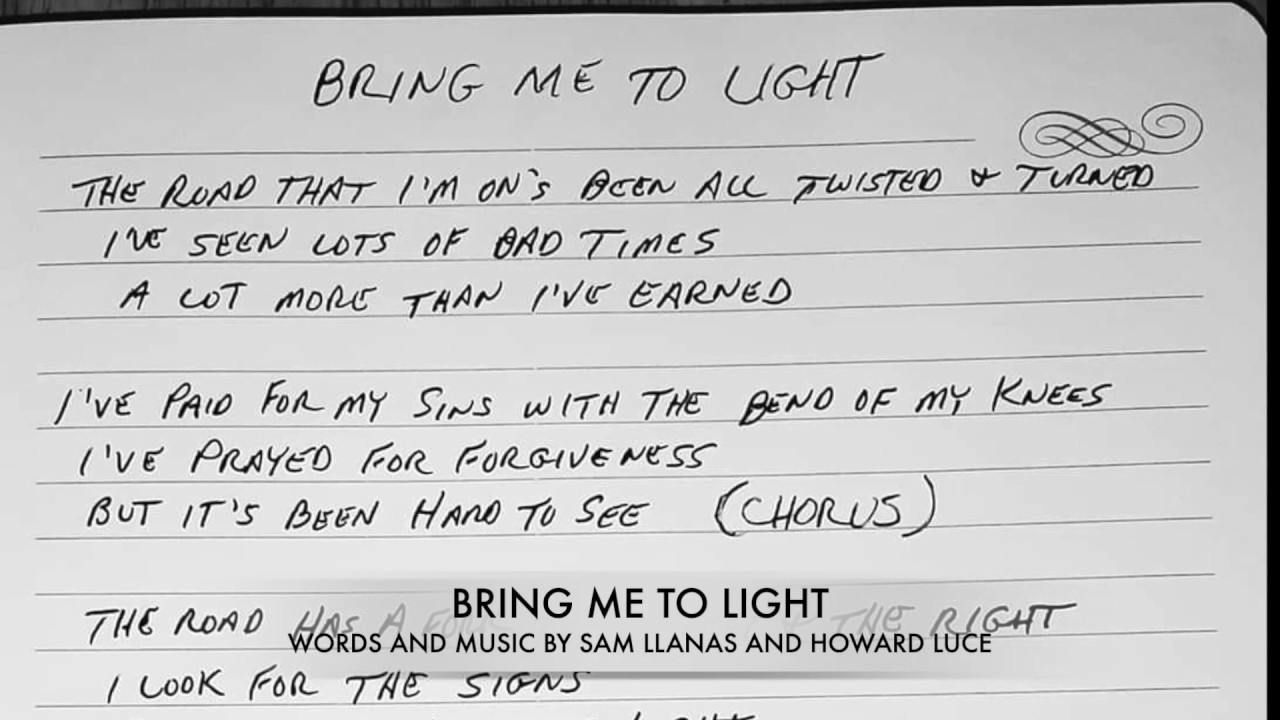 BRING ME TO LIGHT
THE ROAD THAT I'M ON'S BEEN ALL TWISTED & TURNED
I'VE SEEN LOTS OF BAD TIMES
A LOT MORE THAN I'VE EARNED
I'VE PAID FOR MY SINS WITH THE BEND OF MY KNEES
I'VE PRAYED FOR FORGIVENESS
BUT IT'S BEEN HARD TO SEE (CHORUS)
THE ROAD HAS A FORK THE RIGHT
BRING ME TO LIGHT
WORDS AND MUSIC BY SAM LLANAS AND HOWARD LUCE
I LOOK FOR THE SIGNS